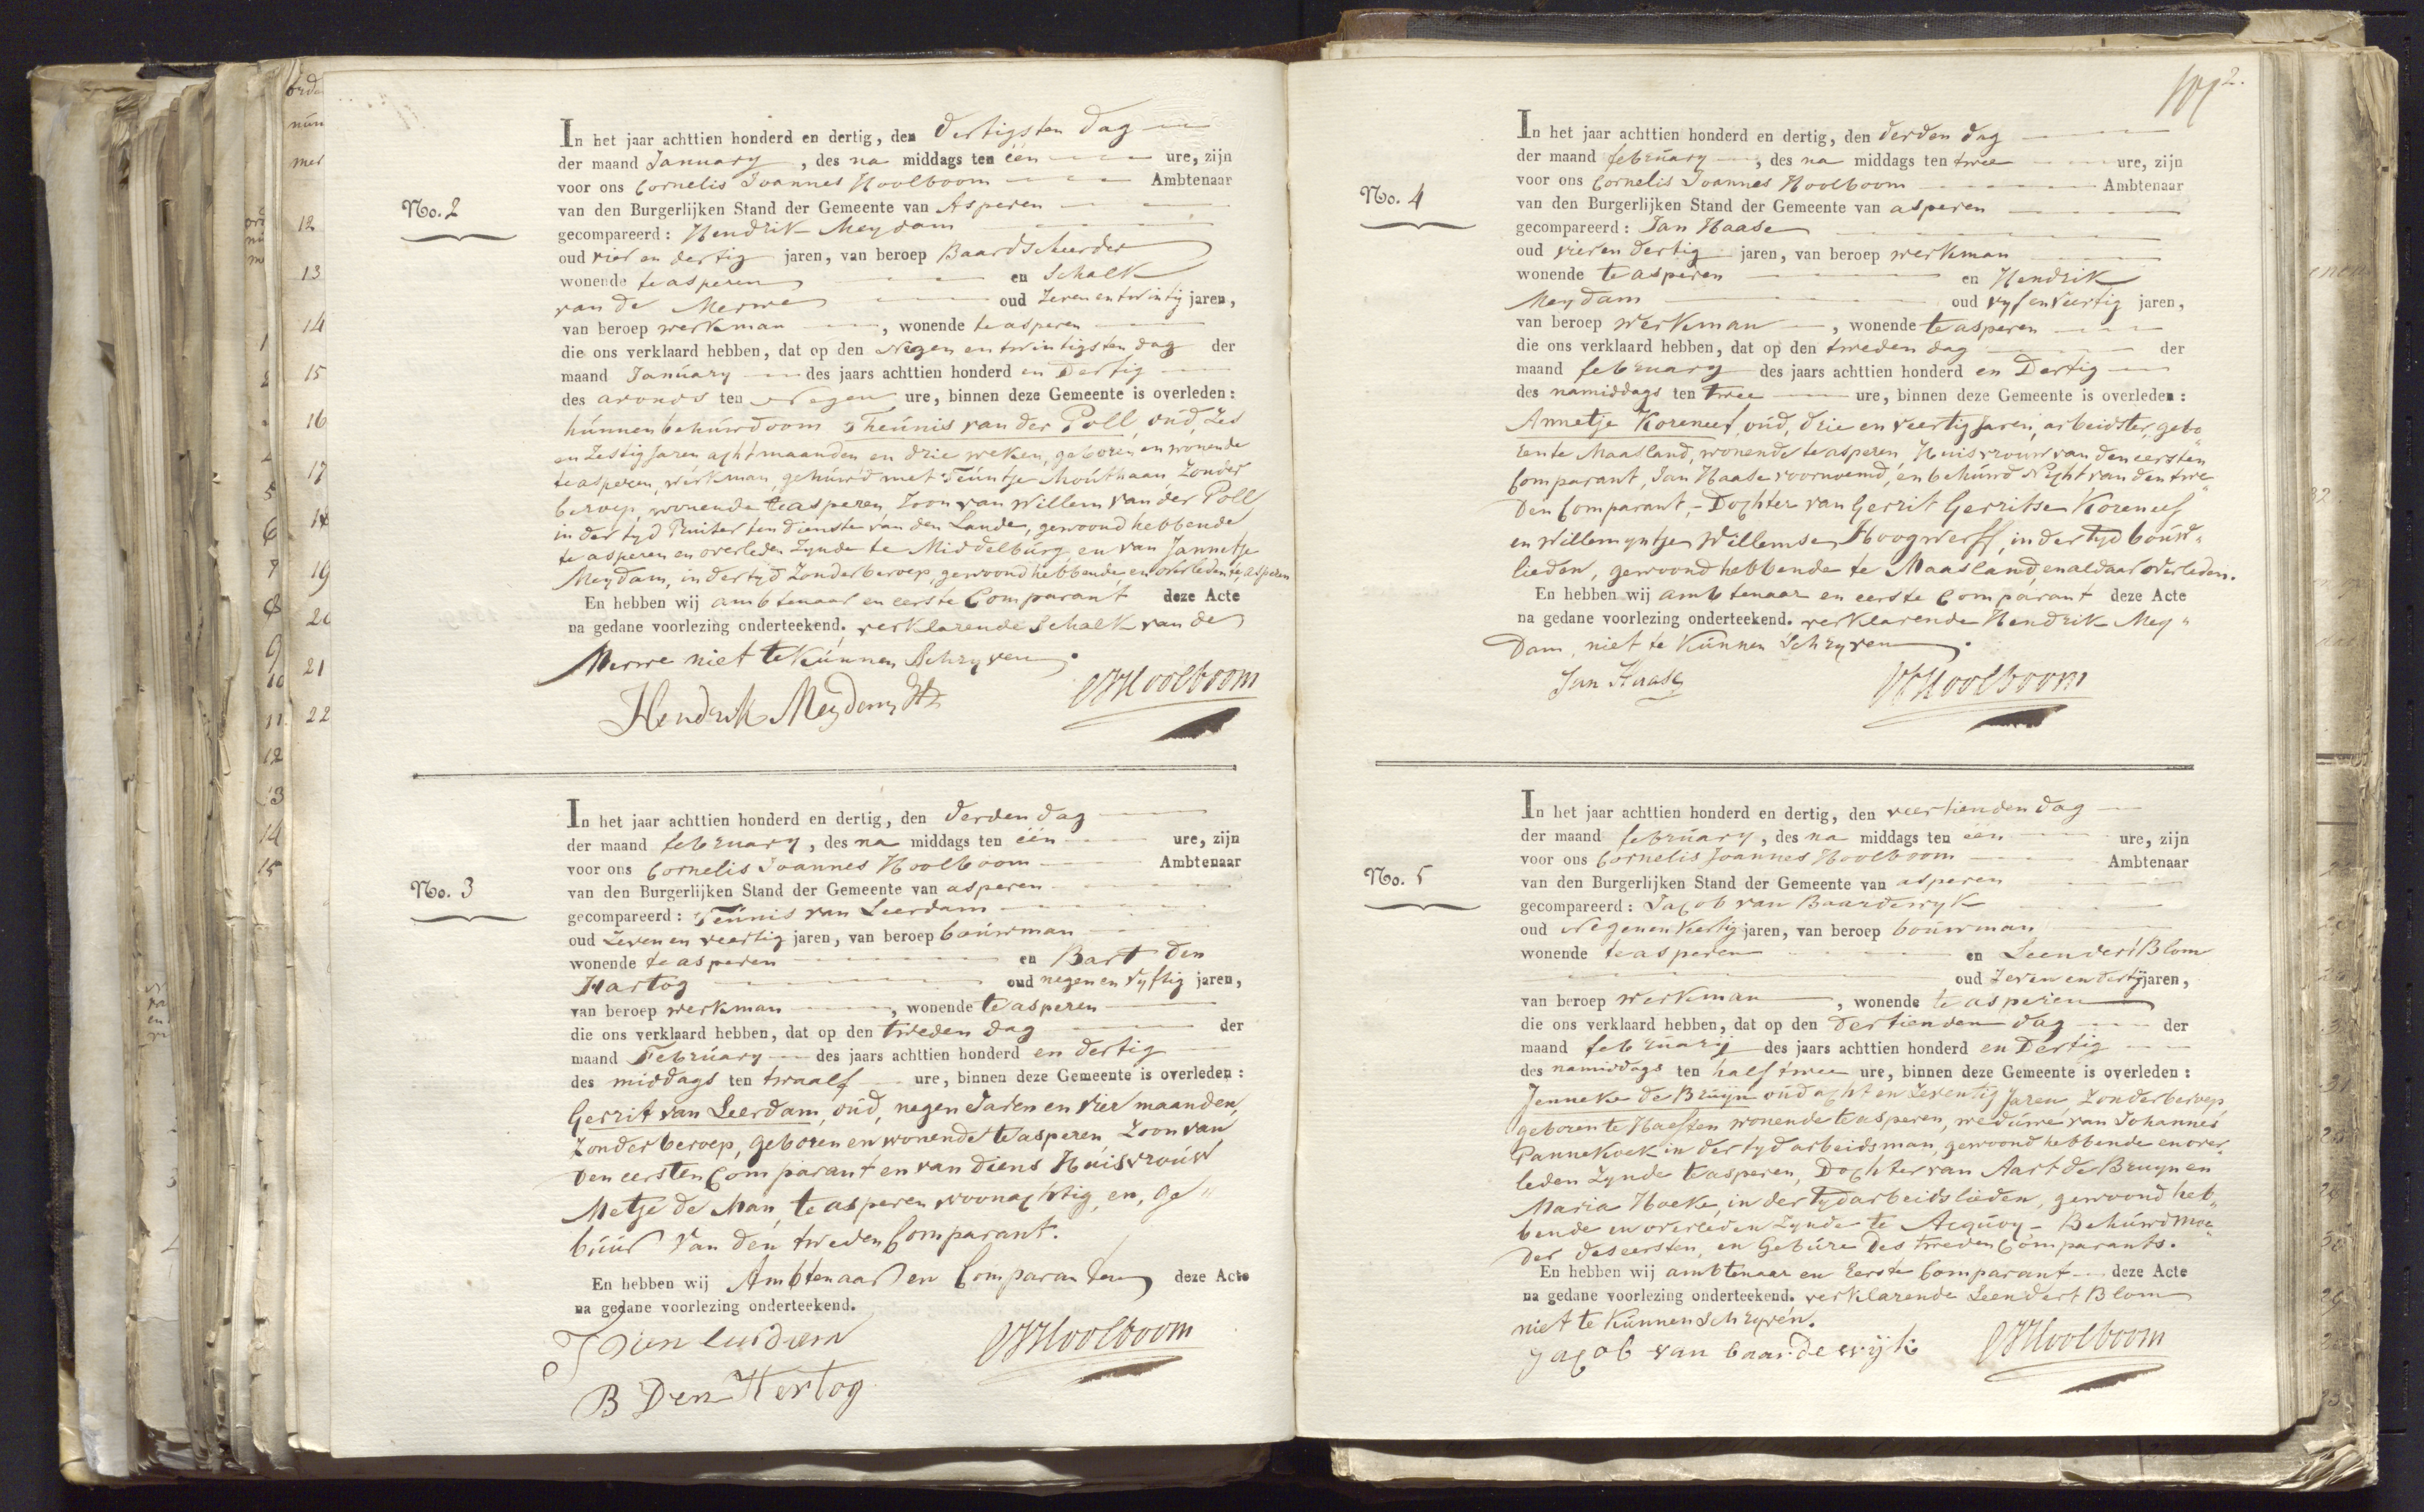 No. 2
In het jaar achttien honderd en dertig, den dertigsten dag
der maand January, des na middags ten één ure, zijn
voor ons Cornelis Joannes Hoolboom Ambtenaar
van den Burgerlijken Stand der Gemeente van Asperen
gecompareerd: Hendrik Meydam
oud vier en dertig jaren, van beroep Baardscheerder
wonende te asperen en Schalk
van de Merwe oud Zeven en twintig jaren,
van beroep werkman, wonende te asperen
die ons verklaard hebben, dat op den Negen en twintigsten dag der
maand January des jaars achttien honderd en Dertig
des avonds ten Negen ure, binnen deze Gemeente is overleden:
hunnen behuwdoom Theunis van der Poll, oud, Zes
en Zestig Jaren acht maanden en drie weken, geboren en wonende
te asperen, werkman, gehuwd met Teuntje Mouthaan, Zonder
beroep, wonende te asperen, Zoon van Willem van der Poll
in der tyd Ruiter ten dienste van den Lande, gewoond hebbende
te asperen en overleden Zynde te Middelburg, en van Jannetje
Meydam, in der tyd Zonder beroep, gewoond hebbende en overleden te asperen
En hebben wij ambtenaar en eerste Comparant deze Acte
na gedane voorlezing onderteekend. verklarende Schalk van de
Merwe niet te kunnen Schryven.
Hendrik Meydam Hz
CJHoolboom
No. 3
In het jaar achttien honderd en dertig, den derden dag
der maand february, des na middags ten één ure, zijn
voor ons Cornelis Joannes Hoolboom Ambtenaar
van den Burgerlijken Stand der Gemeente van asperen
gecompareerd: Teunis van Leerdam
oud Zeven en veertig jaren, van beroep bouwman
wonende te asperen en Bart den
Hartog oud negen en vyftig jaren,
van beroep werkman, wonende te asperen
die ons verklaard hebben, dat op den tweden dag der
maand February des jaars achttien honderd en dertig
des middags ten twaalf ure, binnen deze Gemeente is overleden:
Gerrit van Leerdam, oud, negen Jaren en vier maanden,
Zonder beroep, geboren en wonende te asperen, Zoon van
den eersten Comparant en van diens Huisvrouw
Metje de Man, te asperen woonachtig, en, Ge"
buur van den tweden Comparant.
En hebben wij Ambtenaar en Comparanten deze Acte
na gedane voorlezing onderteekend.
CJHoolboom
B Den Hertog
2.
No. 4
In het jaar achttien honderd en dertig, den derden dag
der maand february, des na middags ten twee ure, zijn
voor ons Cornelis Joannes Hoolboom Ambtenaar
van den Burgerlijken Stand der Gemeente van asperen
gecompareerd: Jan Haase
oud vier en dertig jaren, van beroep werkman
wonende te asperen en Hendrik
Meydam oud vyf en veertig jaren,
van beroep werkman, wonende te asperen
die ons verklaard hebben, dat op den tweden dag der
maand february des jaars achttien honderd en Dertig
des namiddags ten twee ure, binnen deze Gemeente is overleden:
Annetje Koreneef, oud, drie en veertig Jaren, arbeidster, gebo"
ren te Maasland, wonende te asperen, Huisvrouw van den eersten
Comparant, Jan Haase voornoemd, en behuwd Nicht van den twe"
den Comparant, - Dochter van Gerrit Gerritse Koreneef
en Willemyntje Willemse Hoogwerff, in der tyd bouw"
lieden, gewoond hebbende te Maasland, en aldaar overleden.
En hebben wij ambtenaar en eerste Comparant deze Acte
na gedane voorlezing onderteekend. verklarende Hendrik Mey"
dam, niet te kunnen Schryven.
Jan Haase
CJHoolboom
No. 5
In het jaar achttien honderd en dertig, den veertienden dag
der maand february, des na middags ten één ure, zijn
voor ons Cornelis Joannes Hoolboom Ambtenaar
van den Burgerlijken Stand der Gemeente van asperen
gecompareerd: Jacob van Baardewyk
oud Negen en Veertig jaren, van beroep bouwman
wonende te asperen en Leendert Blom
oud Zeven en dertig jaren,
van beroep werkman, wonende te asperen
die ons verklaard hebben, dat op den dertienden dag der
maand february des jaars achttien honderd en Dertig
des namiddags ten half twee ure, binnen deze Gemeente is overleden:
Jenneke de Bruijn oud acht en Zeventig Jaren, Zonder beroep
geboren te Haeften wonende te asperen, weduwe van Johannes
Pannekoek in der tyd arbeidsman, gewoond hebbende en over"
leden Zynde te asperen, Dochter van Aart de Bruyn en
Maria Hoeke, in der tyd arbeidslieden, gewoond heb"
bende en overleden Zynde te Acquoy - Behuwdmoe"
der des eersten, en Gebure des tweden Comparants.
En hebben wij ambtenaar en Eerste Comparant deze Acte
na gedane voorlezing onderteekend. verklarende Leendert Blom
niet te kunnen schryven.
Jacob van baardewijk
CJHoolboom